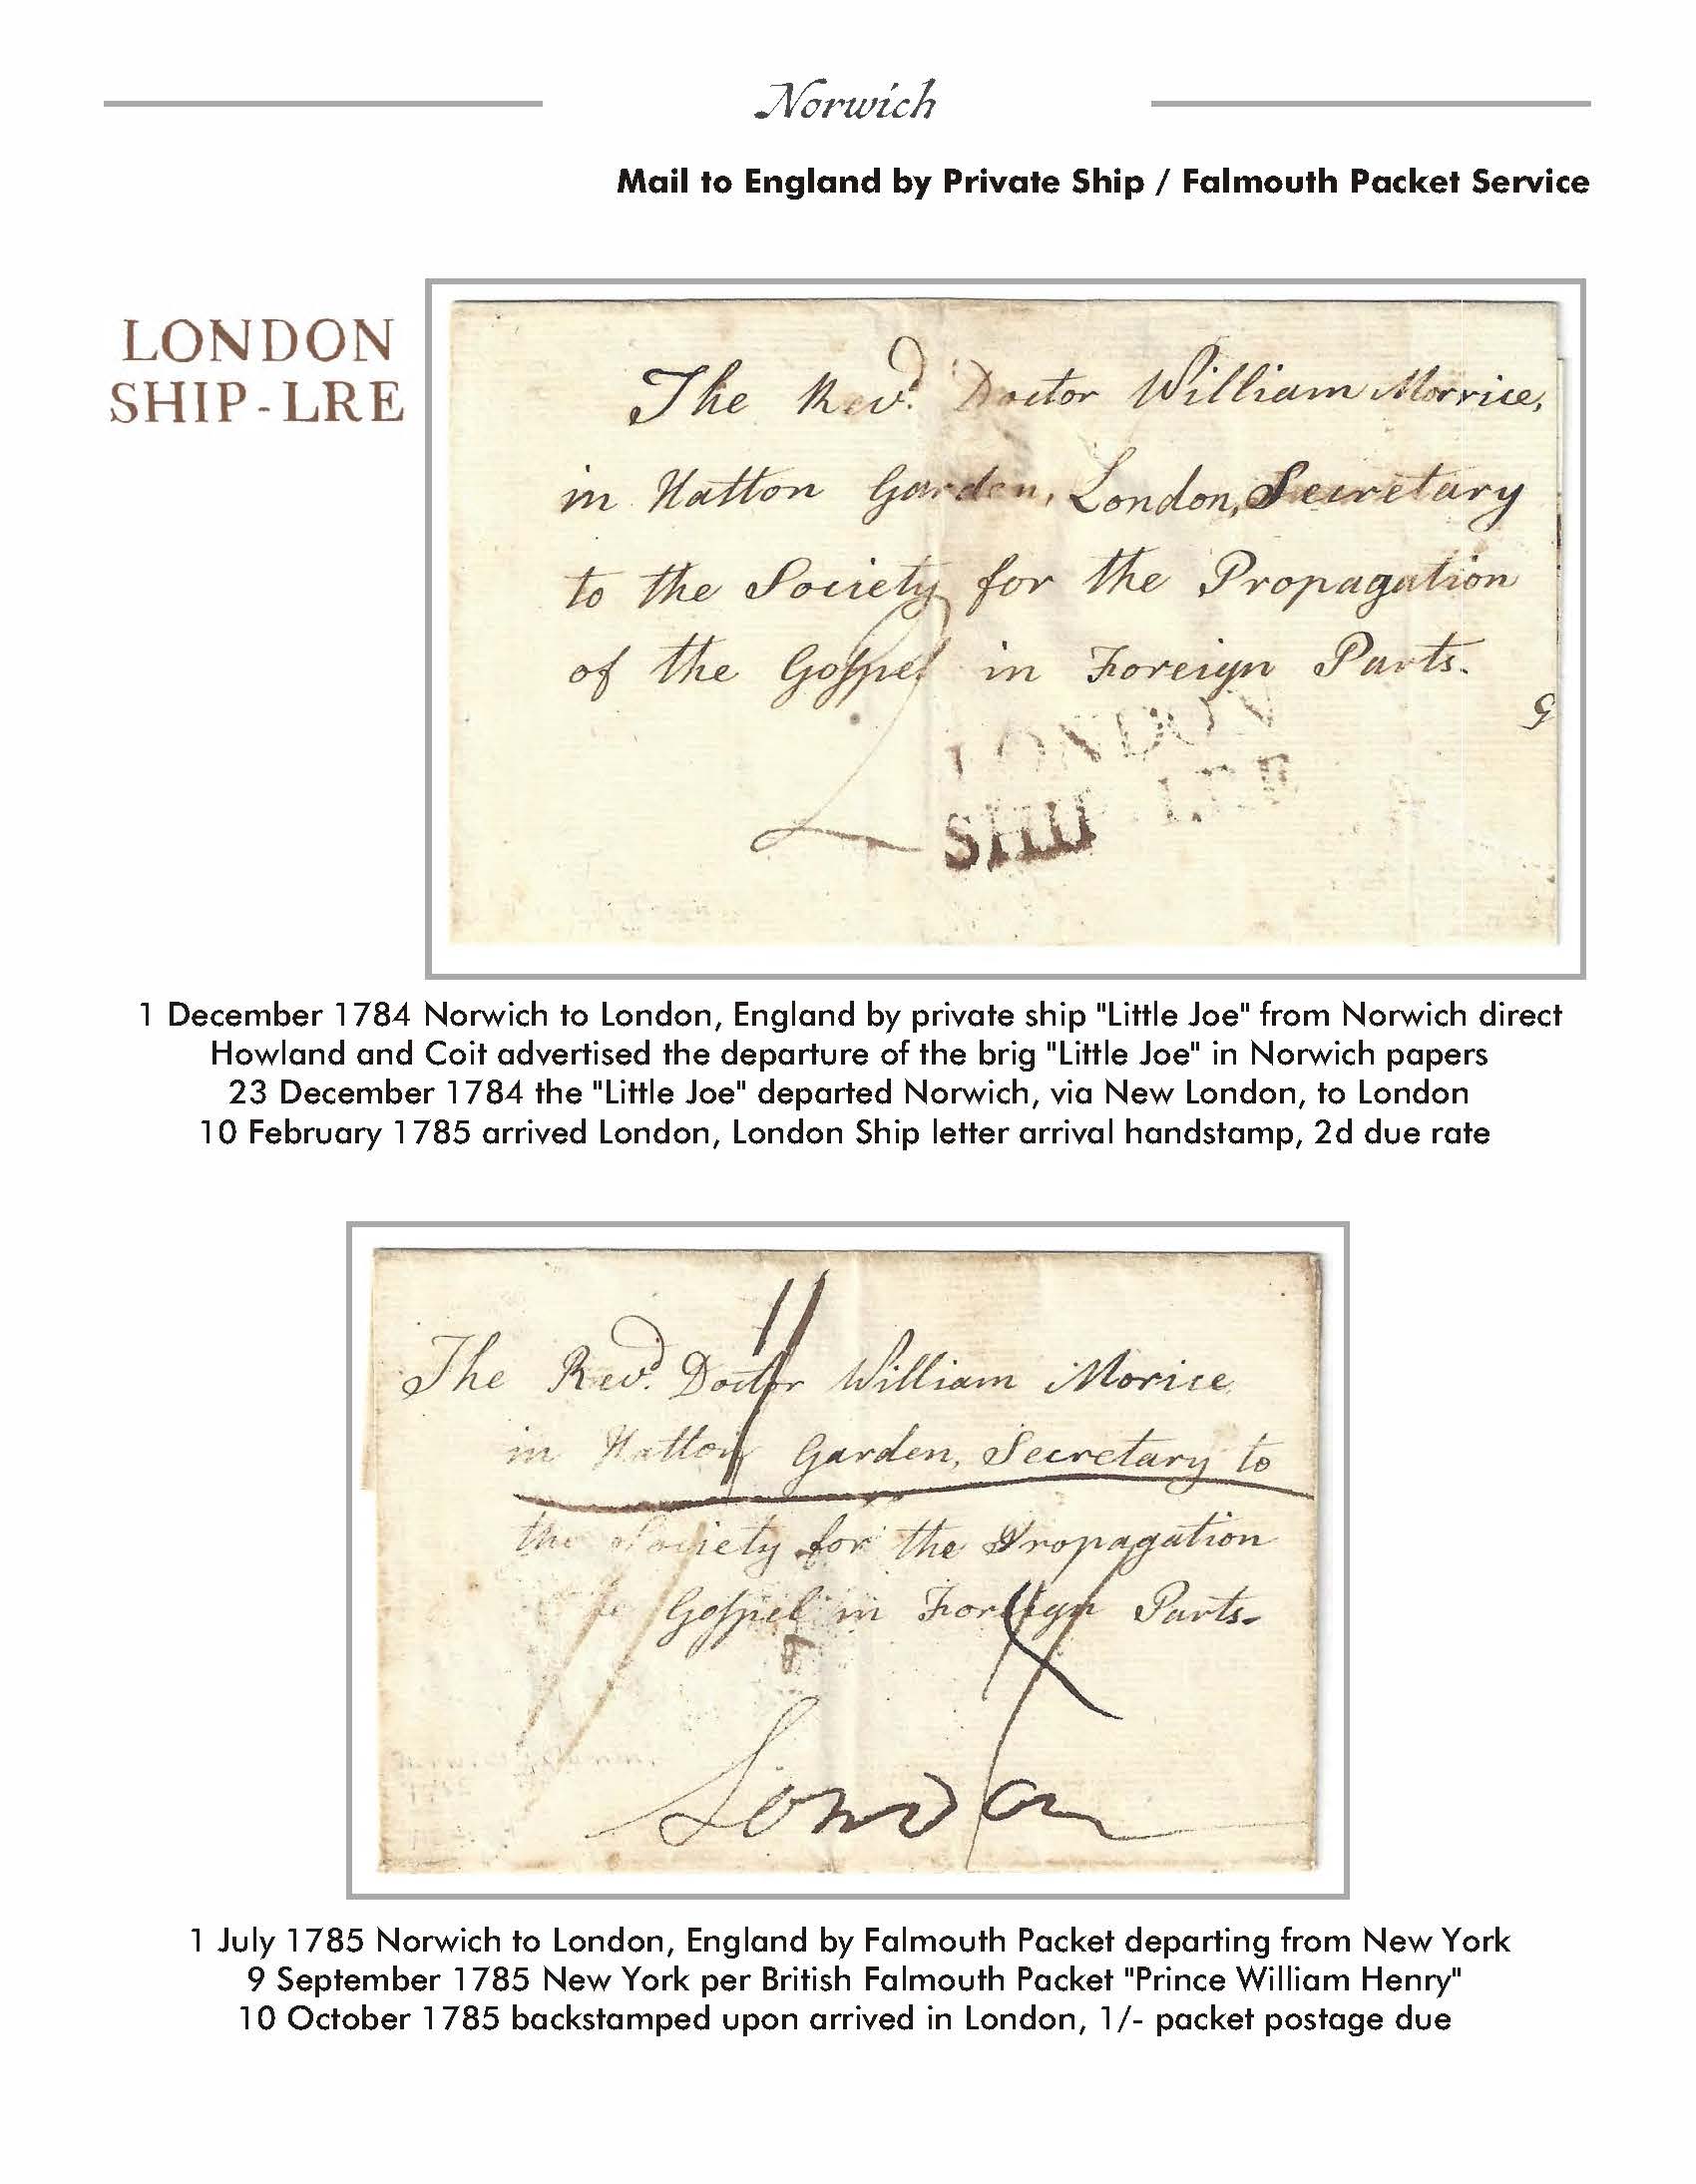 Norwich
Mail to England by Private Ship / Falmouth Packet Service
LONDON
SHIP-LRE
The Revd. Doctor William Morrice,
in Hatton Garden, London, Secretary
to the Society for the Propagation
of the Gospel in Foreign Parts.
LONDON
SHIP LRE
1 December 1784 Norwich to London, England by private ship "Little Joe" from Norwich direct
Howland and Coit advertised the departure of the brig "Little Joe" in Norwich papers
23 December 1784 the "Little Joe" departed Norwich, via New London, to London
10 February 1785 arrived London, London Ship letter arrival handstamp, 2d due rate
The Revd. Doctor William Morice
in Hatton Garden, Secretary to
the Society for the Propagation
Gospel in Foreign Parts.
London
1 July 1785 Norwich to London, England by Falmouth Packet departing from New York
9 September 1785 New York per British Falmouth Packet "Prince William Henry"
10 October 1785 backstamped upon arrived in London, 1/- packet postage due